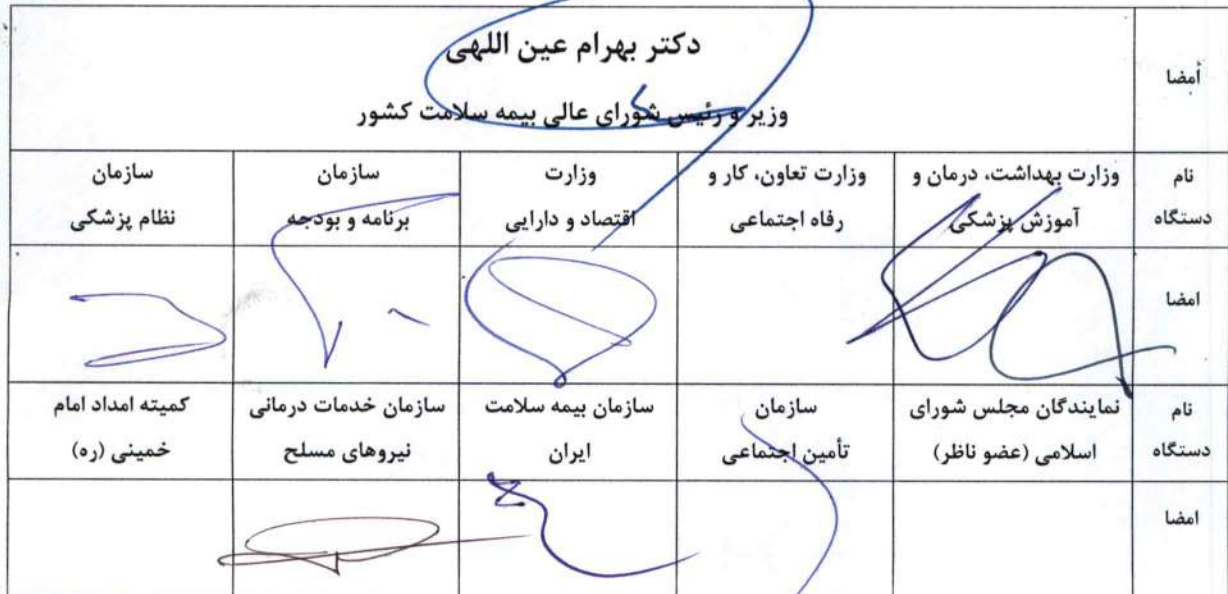 أمضا
دکتر بهرام عین اللهی
وزیر و رئیس شورای عالی بیمه سلامت کشور
نام دستگاه
وزارت بهداشت، درمان و
آموزش پزشکی
وزارت تعاون، کار و
رفاه اجتماعی
وزارت
اقتصاد و دارایی
سازمان
برنامه و بودجه
سازمان
نظام پزشکی
امضا
نام دستگاه
نمایندگان مجلس شورای
اسلامی (عضو ناظر)
سازمان
تأمین اجتماعی
سازمان بیمه سلامت
ایران
سازمان خدمات درمانی
نیروهای مسلح
کمیته امداد امام
خمینی (ره)
امضا